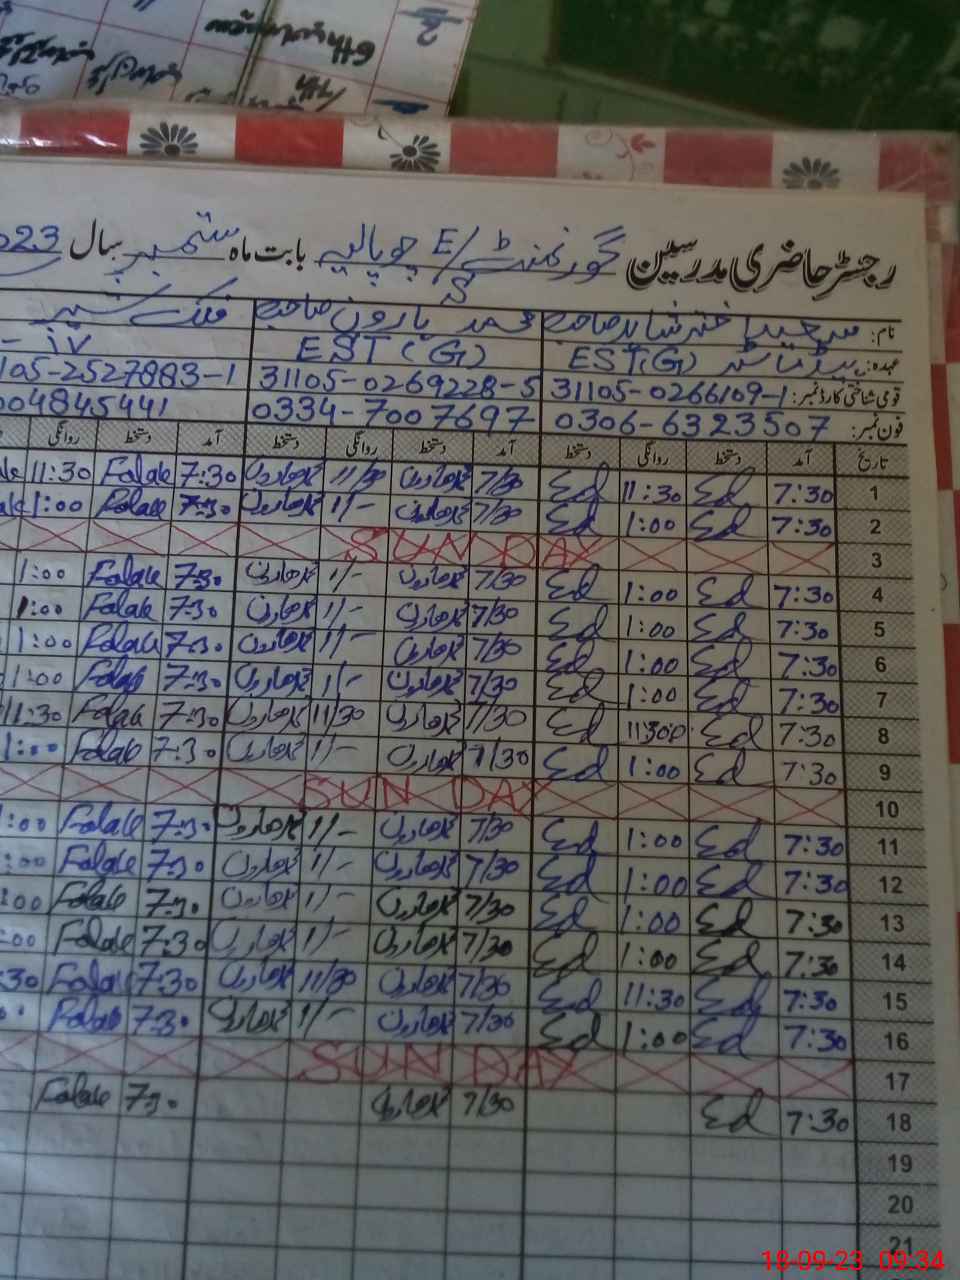 رجسٹر حاضری مدرسین گورنمنٹ E/S چوپالیہ بابت ماہ ستمبر سال 023
نام: اختر شاہد صاحب محمد ہارون صاحب فلک شیر
عہدہ: ہیڈ ماسٹر EST(G) EST(G) - iv
قومی شناختی کارڈ نمبر: 31105-0266109-1 31105-0269228-5 105-2527883-1
فون نمبر: 0306-6323507 0334-7007697 004845441
تاریخ آمد دستخط روانگی دستخط آمد دستخط روانگی دستخط آمد دستخط روانگی
1 7:30 Ed 11:30 Ed 7/30 محمدہارون 11/30 محمدہارون 7:30 Falak 11:30
2 7:30 Ed 1:00 Ed 7/30 محمدہارون 1/- محمدہارون 7:30 Falak 1:00
3 SUNDAY
4 7:30 Ed 1:00 Ed 7/30 محمدہارون 1/- محمدہارون 7:30 Falak 1:00
5 7:30 Ed 1:00 Ed 7/30 محمدہارون 1/- محمدہارون 7:30 Falak 1:00
6 7:30 Ed 1:00 Ed 7/30 محمدہارون 1/- محمدہارون 7:30 Falak 1:00
7 7:30 Ed 1:00 Ed 7/30 محمدہارون 1/- محمدہارون 7:30 Falak 1:00
8 7:30 Ed 11:30 Ed 7/30 محمدہارون 11/30 محمدہارون 7:30 Falak 11:30
9 7:30 Ed 1:00 Ed 7/30 محمدہارون 1/- محمدہارون 7:30 Falak 1:00
10 SUN DAY
11 7:30 Ed 1:00 Ed 7/30 محمدہارون 1/- محمدہارون 7:30 Falak 1:00
12 7:30 Ed 1:00 Ed 7/30 محمدہارون 1/- محمدہارون 7:30 Falak :00
13 7:30 Ed 1:00 Ed 7/30 محمدہارون 1/- محمدہارون 7:30 Falak :00
14 7:30 Ed 1:00 Ed 7/30 محمدہارون 1/- محمدہارون 7:30 Falak :00
15 7:30 Ed 11:30 Ed 7/30 محمدہارون 11/30 محمدہارون 7:30 Falak :30
16 7:30 Ed 1:00 Ed 7/30 محمدہارون 1/- محمدہارون 7:30 Falak
17 SUN DAY
18 7:30 Ed 7/30 محمدہارون 7:30 Falak
19
20
21
18-09-23 09:34